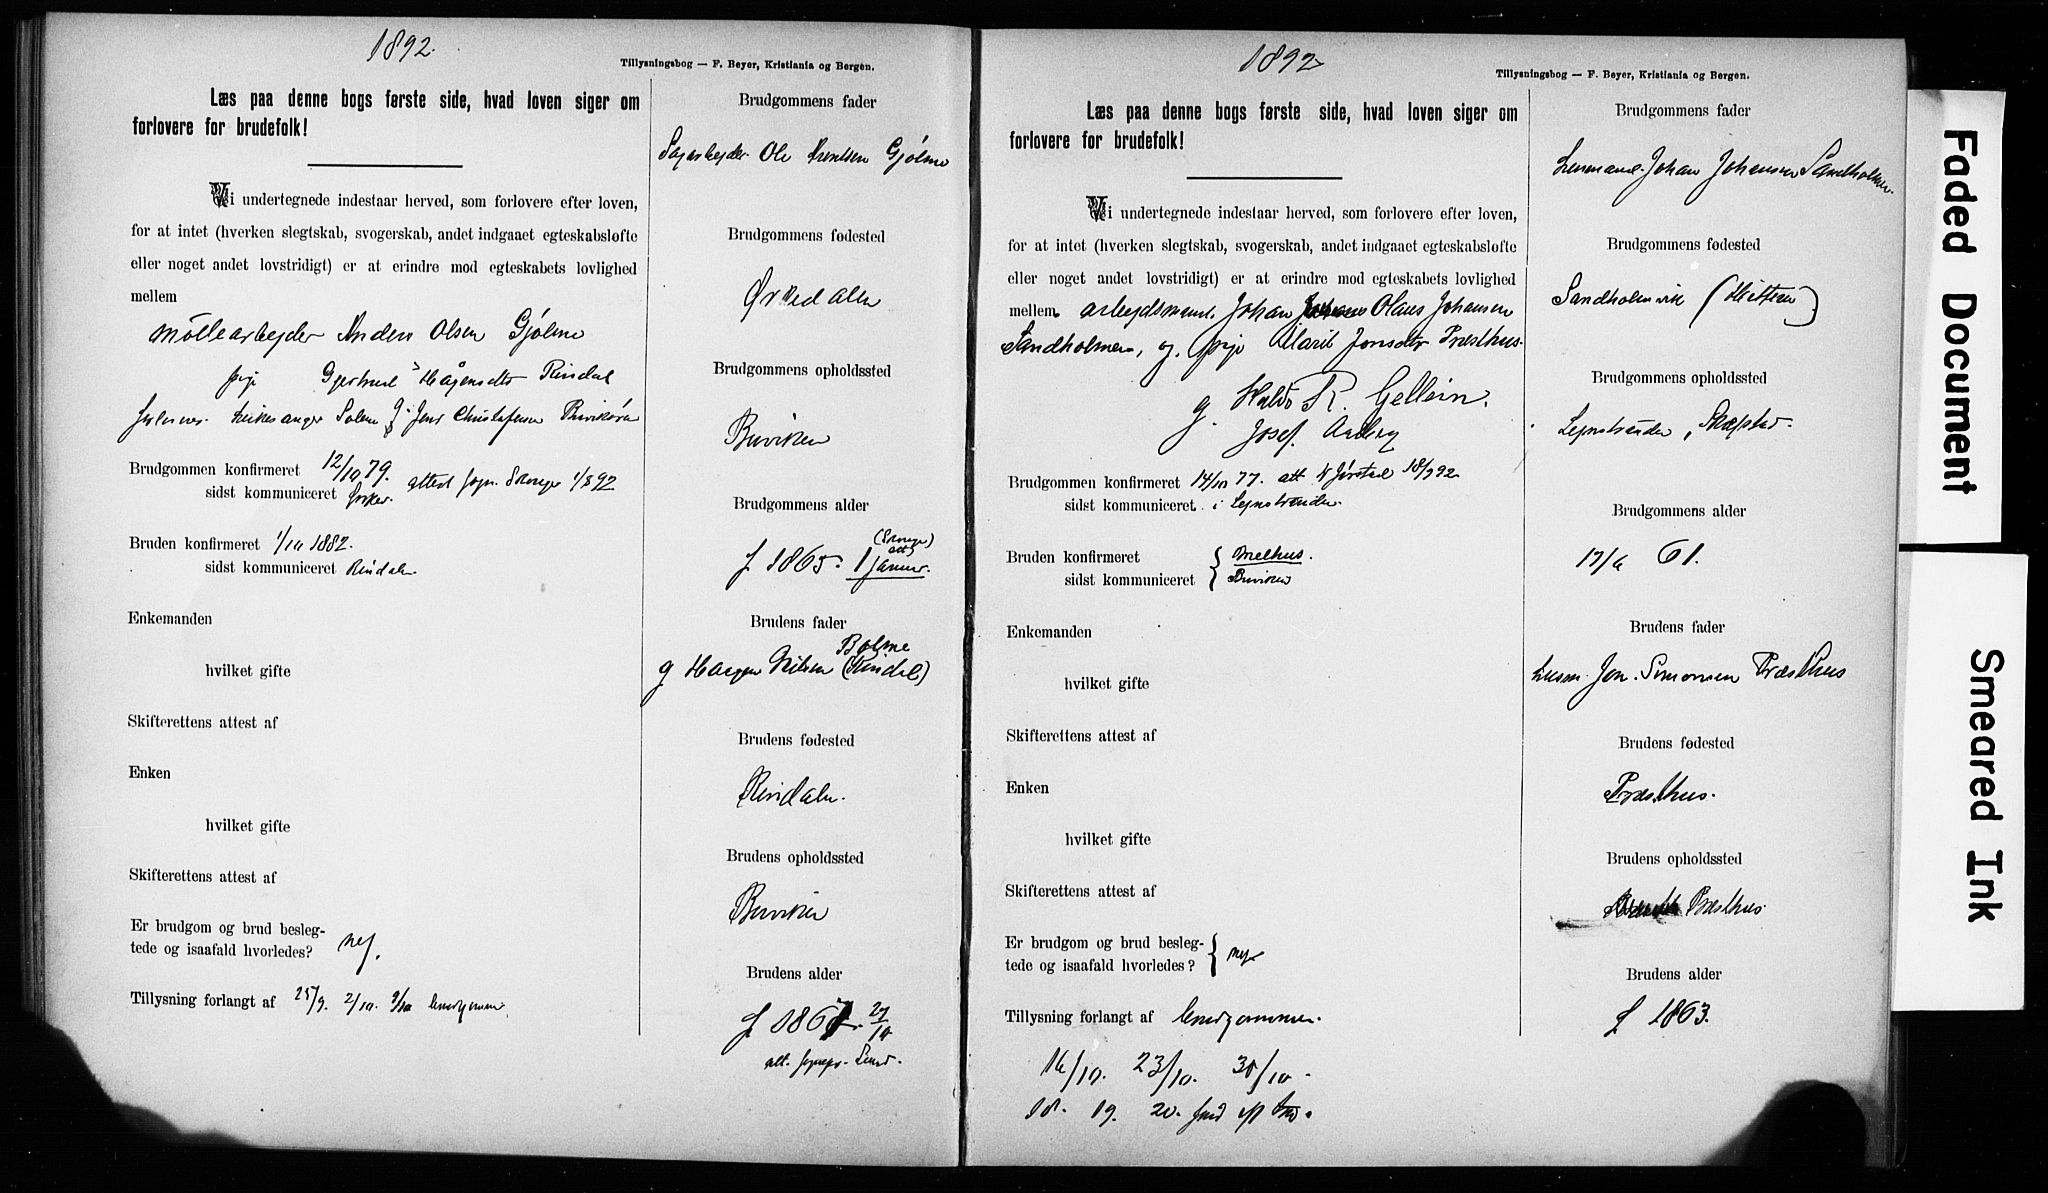 1892.
Tillysningsbog — F. Beyer, Kristiania og Bergen.
Læs paa denne bogs første side, hvad loven siger om
forlovere for brudefolk!
Vi undertegnede indestaar herved, som forlovere efter loven,
for at intet (hverken slegtskab, svogerskab, andet indgaaet egteskabsløfte
eller noget andet lovstridigt) er at erindre mod egteskabets lovlighed
mellem
Møllearbejder Anders Olsen Gjølme
pige Gjertrud Hågensdtr Rindal
Solem Jens Christofersen Buviksøra
Brudgommen konfirmeret 12/10 79.
sidst kommuniceret attest 1/8 92
Bruden konfirmeret 1/10 1882.
sidst kommuniceret Rindalen
Enkemanden
hvilket gifte
Skifterettens attest af
Enken
hvilket gifte
Skifterettens attest af
Er brudgom og brud besleg-
tede og isaafald hvorledes? nej.
Tillysning forlangt af 25/9. 2/10. 9/10 brudgommen
Brudgommens fader
Sagarbejder Ole Arentsen Gjølme
Brudgommens fødested
Orkedalen
Brudgommens opholdssted
Buviken
Brudgommens alder
f 1865 1 januar.
Brudens fader
g Haagen Nilsen Bolme (Rindal)
Brudens fødested
Rindalen.
Brudens opholdssted
Buviken
Brudens alder
f 1867. 27/10
att.
1892
Tillysningsbog — F. Beyer, Kristiania og Bergen.
Læs paa denne bogs første side, hvad loven siger om
forlovere for brudefolk!
Vi undertegnede indestaar herved, som forlovere efter loven,
for at intet (hverken slegtskab, svogerskab, andet indgaaet egteskabsløfte
eller noget andet lovstridigt) er at erindre mod egteskabets lovlighed
mellem arbejdsmand Johan Olaus Johansen
Sandholmen, og pige Marit Jonsdtr Præsthus.
g Haldo R. Gellein.
g Josef Aaberg
Brudgommen konfirmeret 14/10 77. att 18/9 92
sidst kommuniceret i Lejnstranden.
Bruden konfirmeret { Melhus.
sidst kommuniceret Buviken
Enkemanden
hvilket gifte
Skifterettens attest af
Enken
hvilket gifte
Skifterettens attest af
Er brudgom og brud besleg-
tede og isaafald hvorledes? } nej
Tillysning forlangt af brudgommen.
16/10. 23/10. 30/10.
18. 19. 20.
Brudgommens fader
Lensmand Johan Johansen Sandholmen.
Brudgommens fødested
Sandholmvik (Hitteren)
Brudgommens opholdssted
Lejnstranden, Skjefstad.
Brudgommens alder
17/6 61.
Brudens fader
Husm. Jon Simonsen Præsthus
Brudens fødested
Præsthus.
Brudens opholdssted
Præsthus
Brudens alder
f 1863.
Faded Document
Smeared Ink